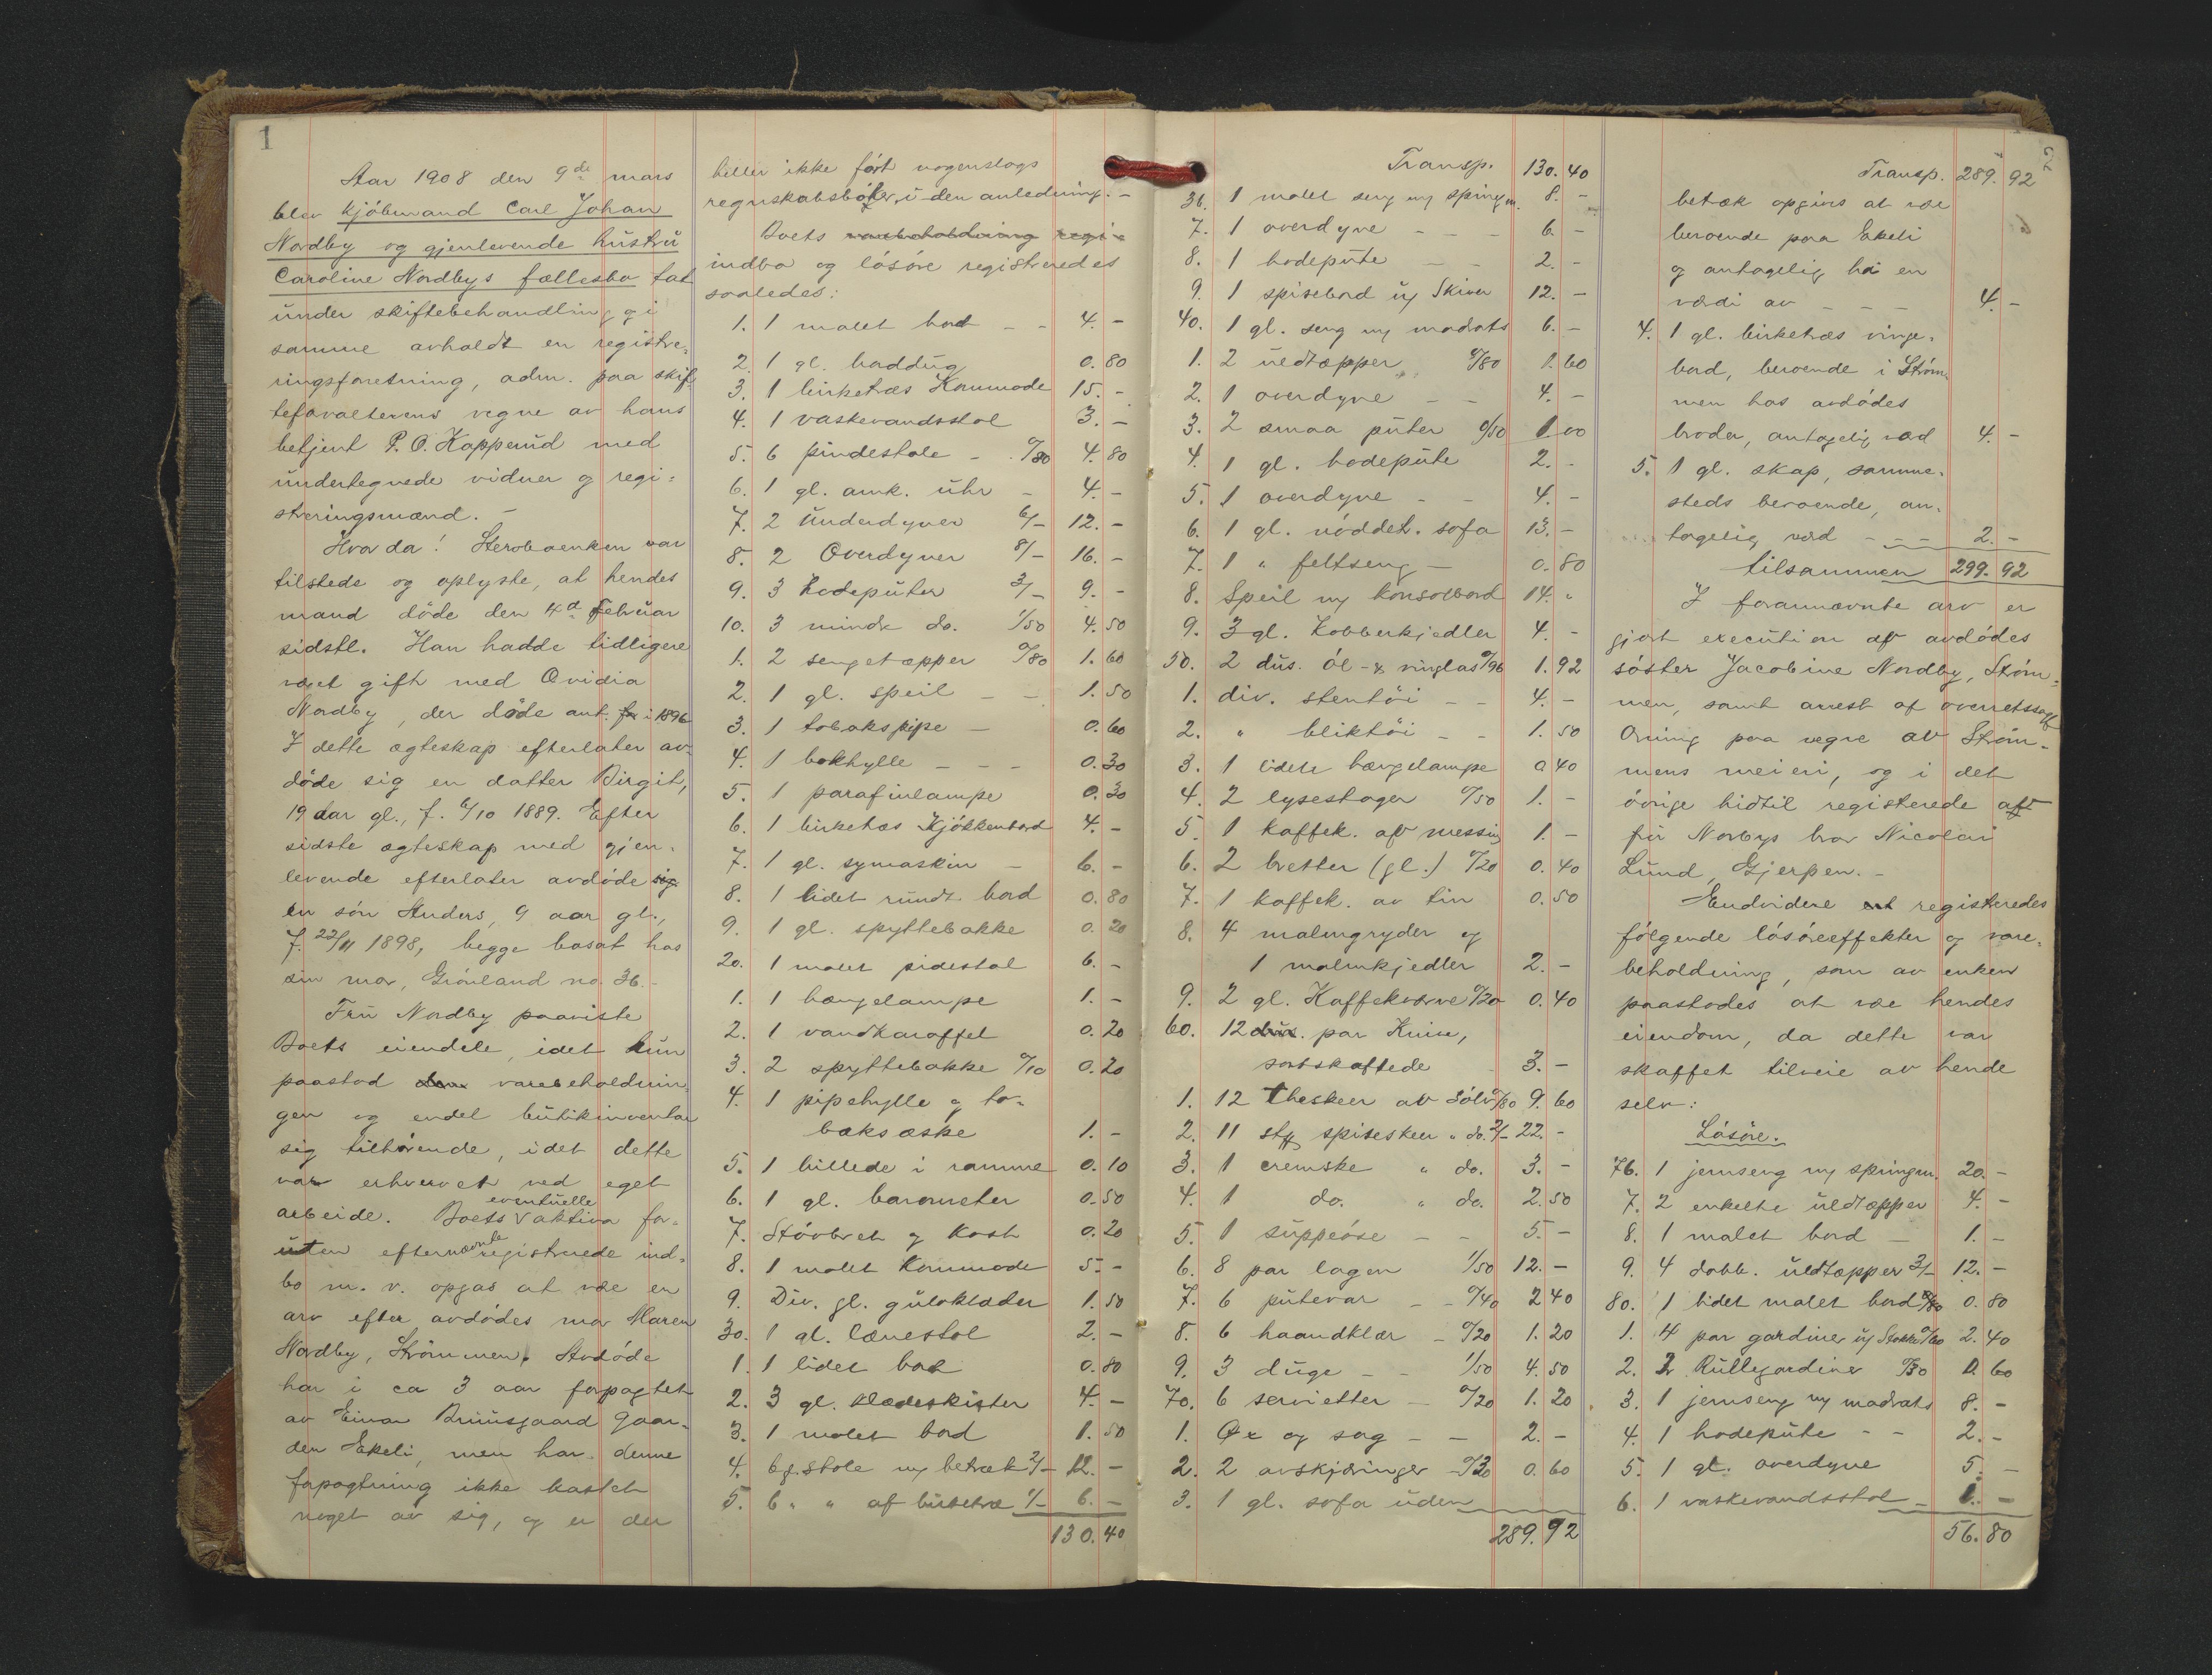 1
Aar 1908 den 9de mars
blev kjöbmand Carl Johan
Nordby og gjenlevende hustru
Caroline Nordbys fællesbo tat
under skiftebehandling og i
samme avholdt en registre=
ringsforretning, adm. paa skif
teforvalterens vegne av hans
betjent P. O. Kapperud med
undertegnede vidner og regi=
streringsmænd. –
Hvorda! Sterboenken var
tilstede og oplyste, at hendes
mand döde den 4de Februar
sidstl. Han hadde tidligere
været gift med Ovidia
Nordby, der döde ant. for i 1896
I dette ægteskap efterlater av=
döde sig en datter Birgit,
19 aar gl., f. 6/10 1889. Efter
sidste ægteskap med gjen=
levende efterlater avdöde sig
en sön Anders, 9 aar gl.,
f. 22/11 1898, begge bosat hos
sin mor, Grönland no. 36. –
Fru Nordby paaviste
Boets eiendele, idet hun
paastod den varebeholdnin
gen og endel butikinventar
sig tilhörende, idet dette
var erhvervet ved eget
eventuelle
arbeide. Boets V aktiva for=
uten efternævnte registrerede ind=
bo m. v. opgas at være en
arv efter avdödes mor Maren
Nordby, Strömmen. Avdöde
har i ca 3 aar forpagtet
av Einar Bruusgaard gaar=
den Ekeli, men har denne
forpagtning ikke kastet
noget av sig, og er der
heller ikke fört nogenslags
regnskabsböker i den anledning. –
Boets varebeholdning regi=
indbo og lösöre registreredes
saaledes:
1. 1 malet bord – – 4. –
2. 1 gl. haddug 0.80
3. 1 birketræs Kommode 15. –
4. 1 vaskevandsstol 3. –
5. 6 pindestole – 0/80 4.80
6. 1 gl. amk. uhr – 4. –
7. 2 Underdyner 6/– 12. –
8. 2 Overdyner 8/– 16. –
9. 3 hodeputer 3/– 9. –
10. 3 mindre do. 1/50 4.50
1. 2 sengetæpper 0/80 1.60
2. 1 gl. speil – – 1.50
3. 1 tobakspipe – 0.60
4. 1 bokhylle – – – 0.30
5. 1 parafinlampe 0.30
6. 1 birketræs Kjökkenbord 4. –
7. 1 gl. symaskin – 6. –
8. 1 lidet rundt bord 0.80
9. 1 gl. spyttebakke 0.20
20. 1 malet pidestal 6. –
1. 1 hængelampe 1. –
2. 1 vandkaraffel 0.20
3. 2 spyttebakke 0/10 0.20
4. 1 pipehylle og to=
baksæske 1. –
5. 1 billede i ramme 0.10
6. 1 gl. barometer 0.50
7. Stövbret og kost 0.20
8. 1 malet Kommode 5. –
9. Div. gl. gulvklæder 1.50
30. 1 gl. lænestol 2. –
1. 1 lidet bord 0.80
2. 3 gl. klædeskister 4. –
3. 1 malet bord 1.50
4. 6 gl. stole m/ betræk 2/– 12. –
5. 6 " " af birketræ 1/– 6. –
130.40
Transp. 130.40
36. 1 malet seng m/ springm. 8. –
7. 1 overdyne – – – 6. –
8. 1 hodepute – – 2. –
9. 1 spisebord m/ Skiver 12. –
40. 1 gl. seng m/ madrats 6. –
1. 2 uldtæpper 0/80 1.60
2. 1 overdyne – – 4. –
3. 2 smaa puter 0/50 1.00
4. 1 gl. hodepute 2. –
5. 1 overdyne – – 4. –
6. 1 gl. nöddet. sofa 13. –
7. 1 " feltseng – 0.80
8. Speil m/ konsolbord 14. "
9. 3 gl. Kobberkjedler 4. –
50. 2 dus. öl- & vinglas 0/96 1.92
1. div. stentöi – – 4. –
2. " bliktöi – – 1.50
3. 1 lidet hængelampe 0.40
4. 2 lysestager 0/50 1. –
5. 1 kaffek. af messing 1. –
6. 2 bretter (gl.) 0/20 0.40
7. 1 kaffek. av tin 0.50
8. 4 malmgryder og
1 malmkjedler 2. –
9. 2 gl. Kaffekværne 0/20 0.40
60. 12 dus. par Knive,
sortskaftede 3. –
1. 12 theskeer av sölv 0/80 9.60
2. 11 stk spiseskeer " do. 2/– 22. –
3. 1 cremske " do. 3. –
4. 1 do. " do. 2.50
5. 1 suppeöse – – 5. –
6. 8 par lagen 1/50 12. –
7. 6 putevar – – 0/40 2.40
8. 6 haandklær – 0/20 1.20
9. 3 duge – – 1/50 4.50
70. 6 servietter – 0/20 1.20
1. Öx og sag – – 2. –
2. 2 avskjæringer – 0/30 0.60
3. 1 gl. sofa uden
289.92
2
Transp. 289.92
betræk opgives at være
beroende paa Ekeli
og antagelig ha en
værdi av – – – 4. –
4. 1 gl. birketræs vinge=
bord, beroende i Ström
men hos avdödes
broder, antagelig værd 4. –
5. 1 gl. skap, samme=
steds beroende, an=
tagelig værd – – – 2. –
tilsammen 299.92
I forannævnte arv er
gjort execution af avdödes
söster Jacobine Nordby, Ström=
men, samt arrest af overretssagf
Orning paa vegne av Ström=
mens meieri, og i det
övrige hidtil registerede af
fru Norbys bror Nicolai
Lund, Gjerpen. –
Endvidere ent registeredes
fölgende lösöreeffekter og vare=
beholdning, som av enken
paastodes at være hendes
eiendom, da dette var
skaffet tilveie av hende
selv:
Lösöre.
76. 1 jernseng m/ springm. 20. –
7. 2 enkelte uldtæpper 4. –
8. 1 malet bord – 1. –
9. 4 dobb. uldtæpper 3/– 12. –
80. 1 lidet malet bord 0/80 0.80
1. 4 par gardiner m/ Stokke 0/60 2.40
2. 2 Rullegardiner 0/30 0.60
3. 1 jernseng m/ madrats 8. –
4. 1 hodepute – – 2. –
5. 1 gl. overdyne 5. –
6. 1 vaskevandsstol – 1. –
56.80